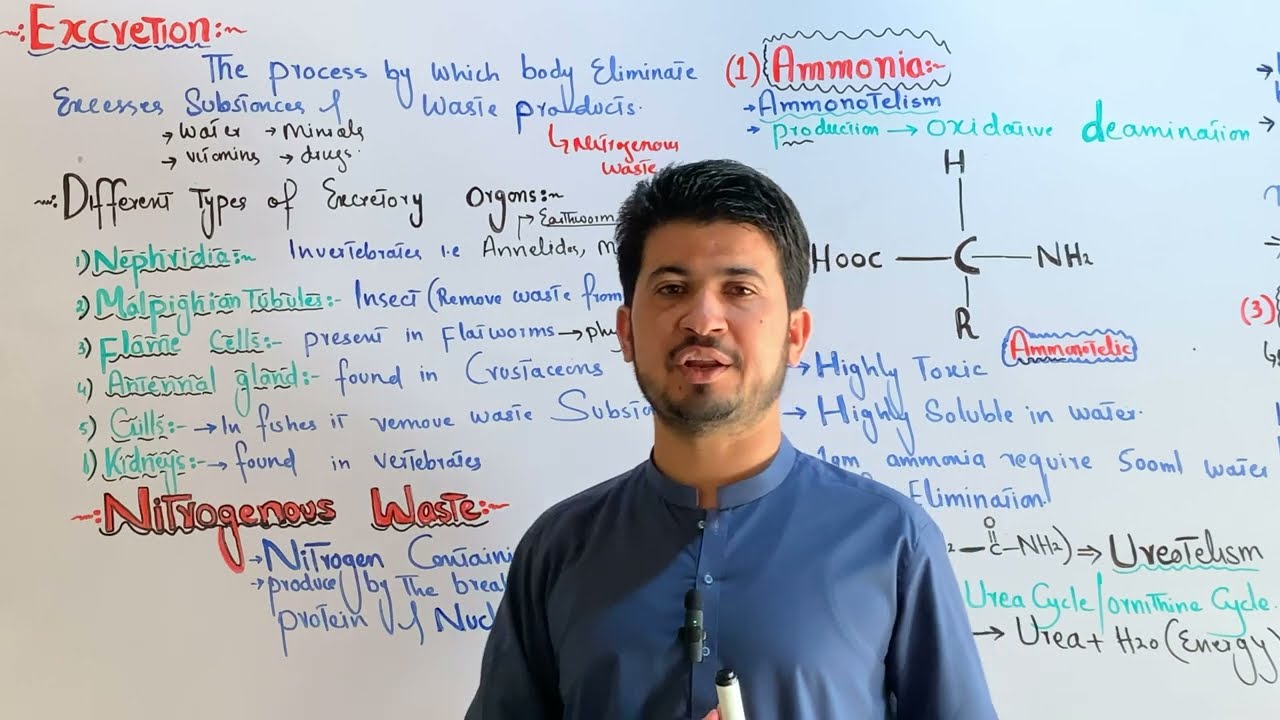 ~:Excretion:~
The process by which body Eliminate
Excesses Substances & Waste products.
→ water → Minrals
→ vitamins → drugs.
↳ Nitrogenous
waste
~:Different Types of Excretory Orgons:~
→ Earthworm
1) Nephridia:~ Invertebrates i.e Annelides, M
2) Malpighian Tubules:- Insect (Remove waste from
3) Flame Cells:- present in Flatworms → phy
4) Antennal gland:- found in Crustaceons
5) Gills:- → In fishes it remove waste Substa
6) Kidneys:- → found in vertebrates
~:Nitrogenous Waste:~
→ Nitrogen Containi
→ produce by the brea
protein & Nucl
(1) Ammonia:-
→ Ammonotelism
→ production → oxidative deamination
H
Hooc — C — NH2
R
Ammonotelic
→ Highly Toxic
→ Highly Soluble in water.
1gm ammonia require 500ml water
Elimination.
O
— C — NH2) ⇒ Ureotelism
Urea Cycle/ornithine Cycle.
→ Urea + H2O (Energy)
(3)